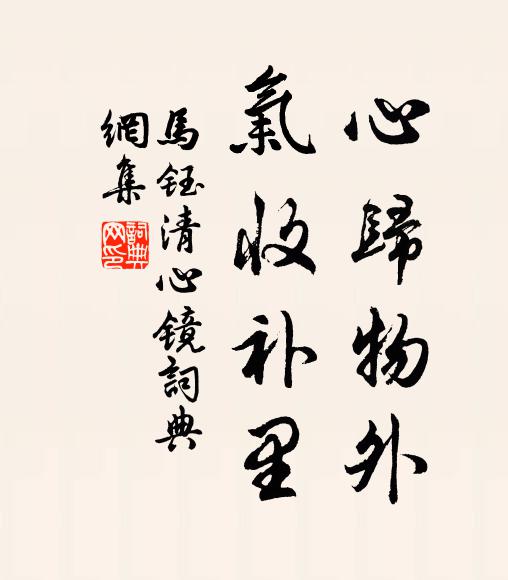 心歸物外
氣收补里
馬鈺清心镜詞典
網集
詞典
网印